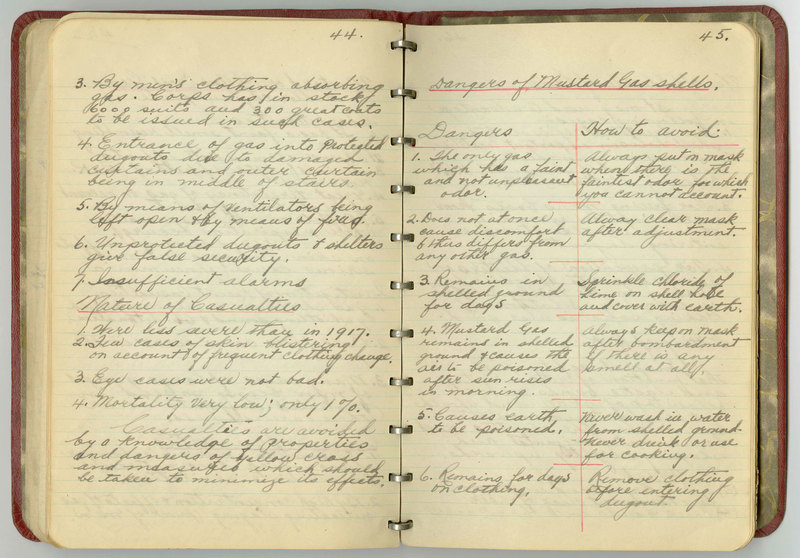 44.
3. By men's clothing absorbing
gas. Corps has in stock
6000 suits and 300 great coats
to be issued in such cases.
4. Entrance of gas into Protected
dugouts due to damaged
curtains and outer curtain
being in middle of stairs.
5. By means of ventilators being
left open & by means of fires.
6. Unprotected dugouts & shelters
give false security.
7. Insufficient alarms
Nature of Casualties
1. Were less severe then in 1917.
2. Few cases of skin blistering
on account of frequent clothing change.
3. Eye cases were not bad.
4. Mortality very low; only 1%.
Casualties are avoided
by a knowledge of properties
and dangers of yellow cross
and measures which should
be taken to minimize its effects.
45.
Dangers of Mustard Gas shells.
Dangers
1. The only gas
which has a faint
and not unpleasant
odor.
2. Does not at once
cause discomfort
& thus differs from
any other gas.
3. Remains in
shelled ground
for days
4. Mustard Gas
remains in shelled
ground & causes the
air to be poisoned
after sun rises
in morning.
5. Causes earth
to be poisoned.
6. Remains for days
on clothing.
How to avoid:
Always put on mask
when there is the
faintest odor for which
you cannot account.
Alway clear mask
after adjustment.
Sprinkle chloride of
lime on shell hole
and cover with earth.
always keep on mask
after bombardment
if there is any
smell at all.
Never wash in water
from shelled ground
Never drink or use
for cooking.
Remove clothing
before entering
dugout.